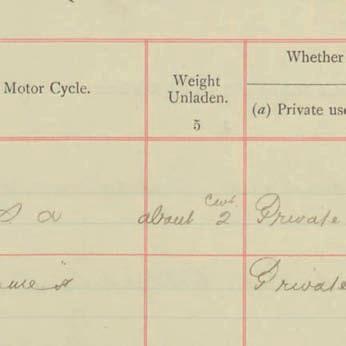 Motor Cycle.
Weight
Unladen.
5
Whether
(a) Private use
Cwt.
S a about 2 Private
Private